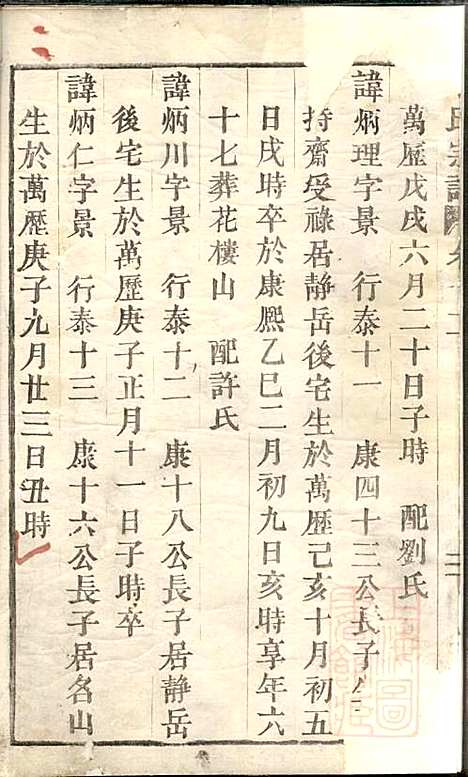 氏宗譜
萬歷戊戌六月二十日子時 配劉氏
諱炳理字景 行泰十一 康四十三公長子
持齋受祿居静岳後宅生於萬歷己亥十月初五
日戌時卒於康熙乙巳二月初九日亥時享年六
十七葬花樓山 配許氏
諱炳川字景 行泰十二 康十八公長子居静岳
後宅生於萬歷庚子正月十一日子時卒
諱炳仁字景 行泰十三 康十六公長子居名山
生於萬歷庚子九月廿三日丑時